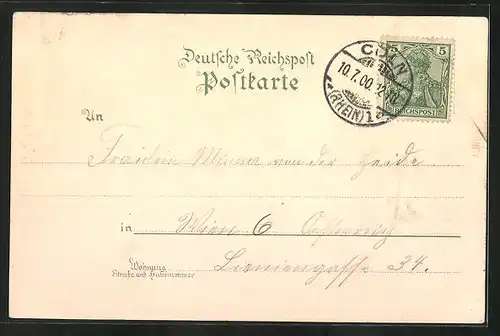 Deutsche Reichspost
Postkarte
CÖLN
10.7.00.12
(RHEIN) 1
5 5
REICHSPOST
An
Fräulein Minna von der Heide
in Wien 6
Wohnung
Straße und Hausnummer
34.